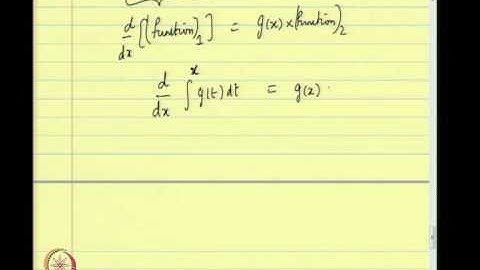 d/dx [(function)₁] = g(x) × (function)₂
d/dx ∫ˣ g(t) dt = g(x) .